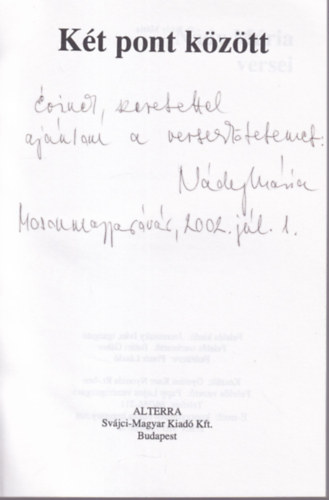 Két pont között
Évinek, szeretettel
ajánlom a verseskötetemet.
Nádas Mária
Mosonmagyaróvár, 2002. júl. 1.
ALTERRA
Svájci-Magyar Kiadó Kft.
Budapest